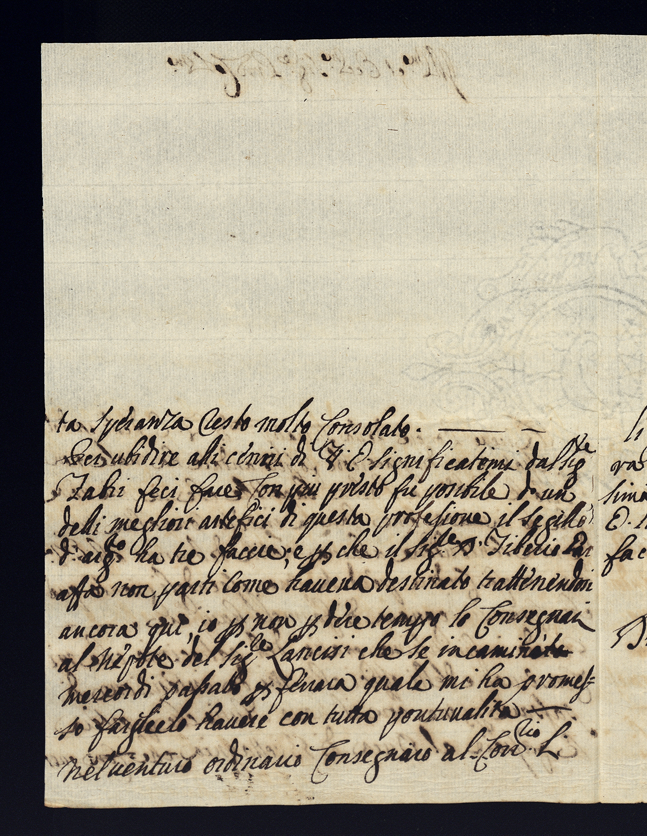 ta speranza resto molto Consolato.
Per ubidire alli cenni di V. E. significatemi dal Sigre
Fabri feci fare con piu presto fu possibile d'un
delli megliori artefici di questa professione il sigillo
d'argto ha tre faccie, e p che il Sigre D. Tiberio
affa non parti come haveva destinato trattenendosi
ancora qui, io p non pdere tempo lo Consegnai
al Nipote del Sigre Lancisi che se incaminò
mercordi passato p ferrara quale mi ha promes=
so farglielo havere con tutta pontualità
Nel venturo ordinario Consegnaro al L
li
ra
sima
E.
fac